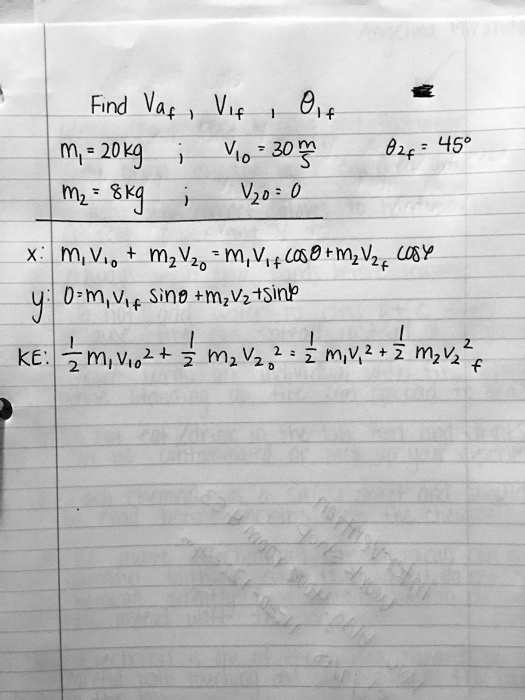 Find Vaf , V1f , θ1f
m₁ = 20kg ; V10 = 30 m/s θ2f = 45°
m₂ = 8kg ; V20 = 0
x: m₁V₁₀ + m₂V₂₀ = m₁V₁f cosθ + m₂V₂f cosφ
y: 0 = m₁V₁f sinθ + m₂V₂f sinφ
KE: 1/2 m₁V₁₀² + 1/2 m₂V₂₀² = 1/2 m₁V₁² + 1/2 m₂V₂²f